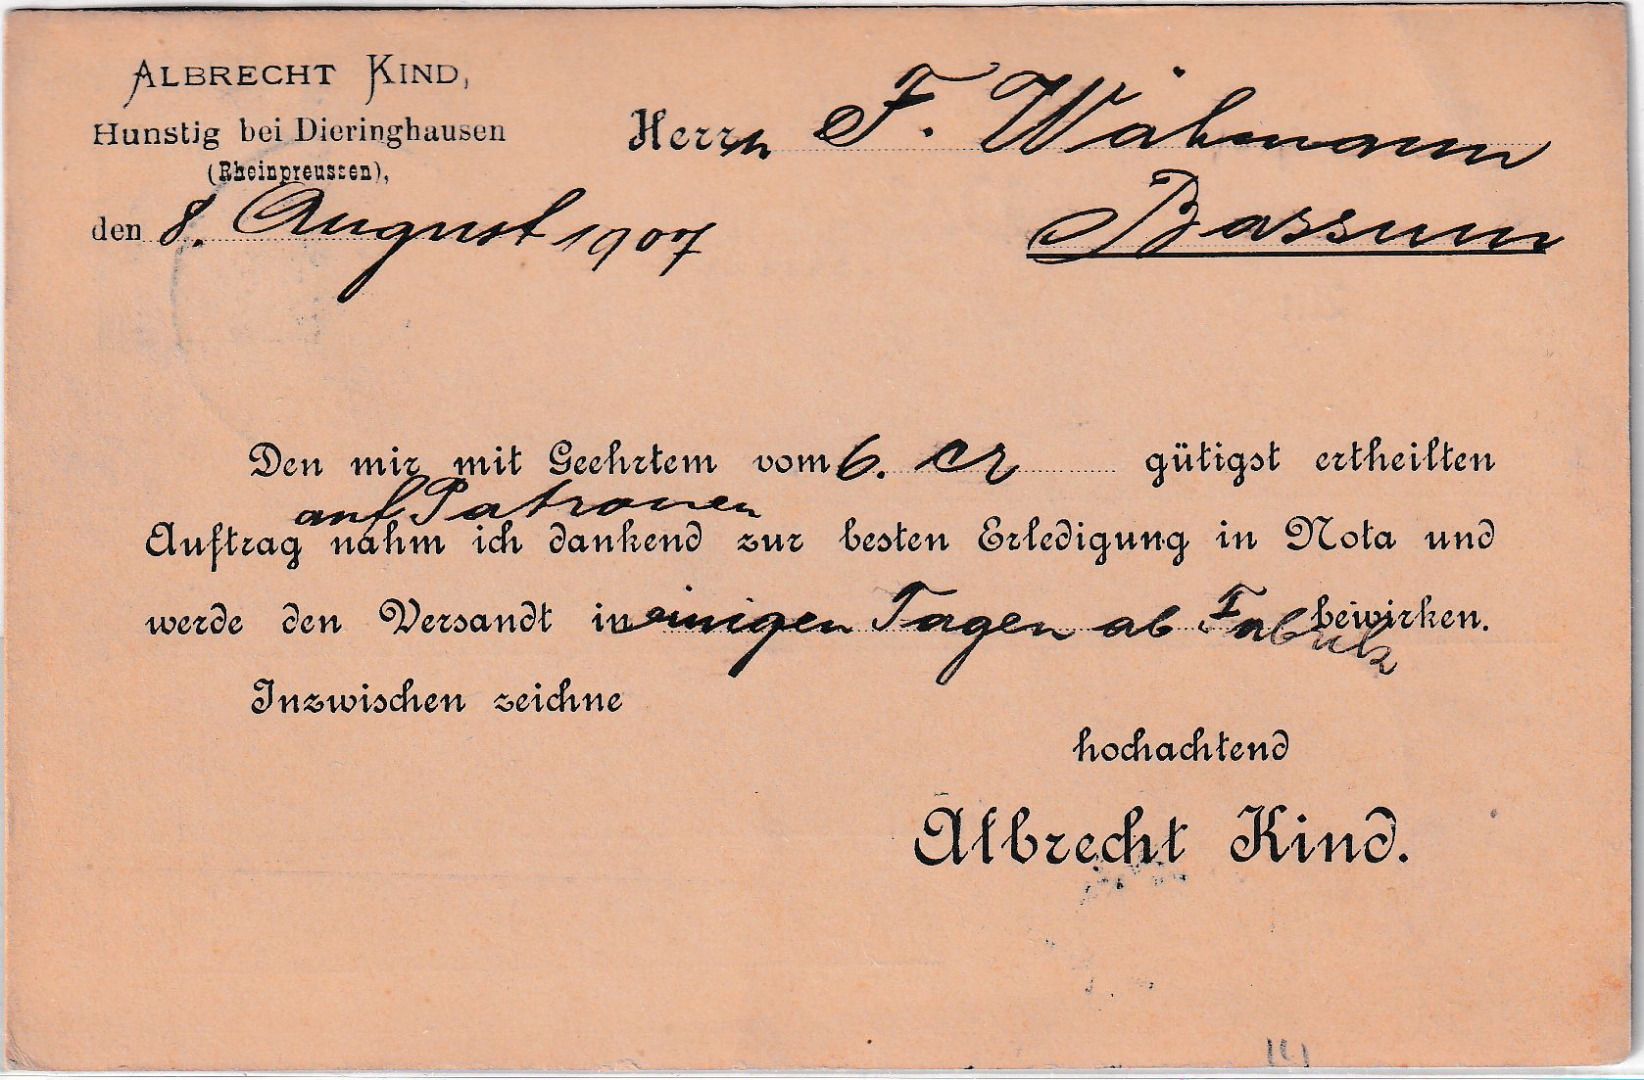 ALBRECHT KIND,
Hunstig bei Dieringhausen
(Rheinpreussen),
den 8. August 1907
Herrn F. Wähmann
Bassum
Den mir mit Geehrtem vom 6. cr gütigst ertheilten
auf Patronen
Auftrag nahm ich dankend zur besten Erledigung in Nota und
werde den Versandt in einigen Tagen ab Fabrik bewirken.
Inzwischen zeichne
hochachtend
Albrecht Kind.